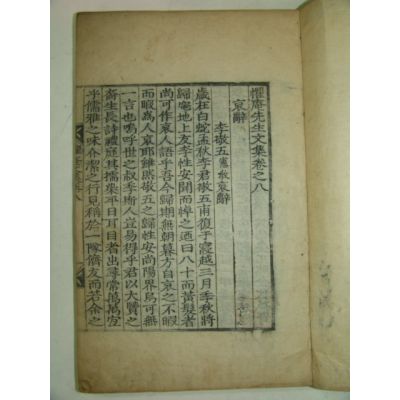 懼庵先生文集卷之八
哀辭
李敬五憲攸哀辭
歲在白蛇孟秋李君敬五甫復于寢越三月季秋將
歸窀地上友李性安聞而悼之迺曰八十而黃髮者
尚可作哀人語乎吾今歸期無朝暮方自哀之不暇
而暇爲人哀耶雖然敬五之歸性安尚陽界烏可無
一言也嗚呼世之叔季斯人豈易得乎君以大賢之
裔生長詩禮庭其擩染平日耳目者出尋常萬萬宜
乎儒雅之味介潔之行見稱於一隊儕友而若余之